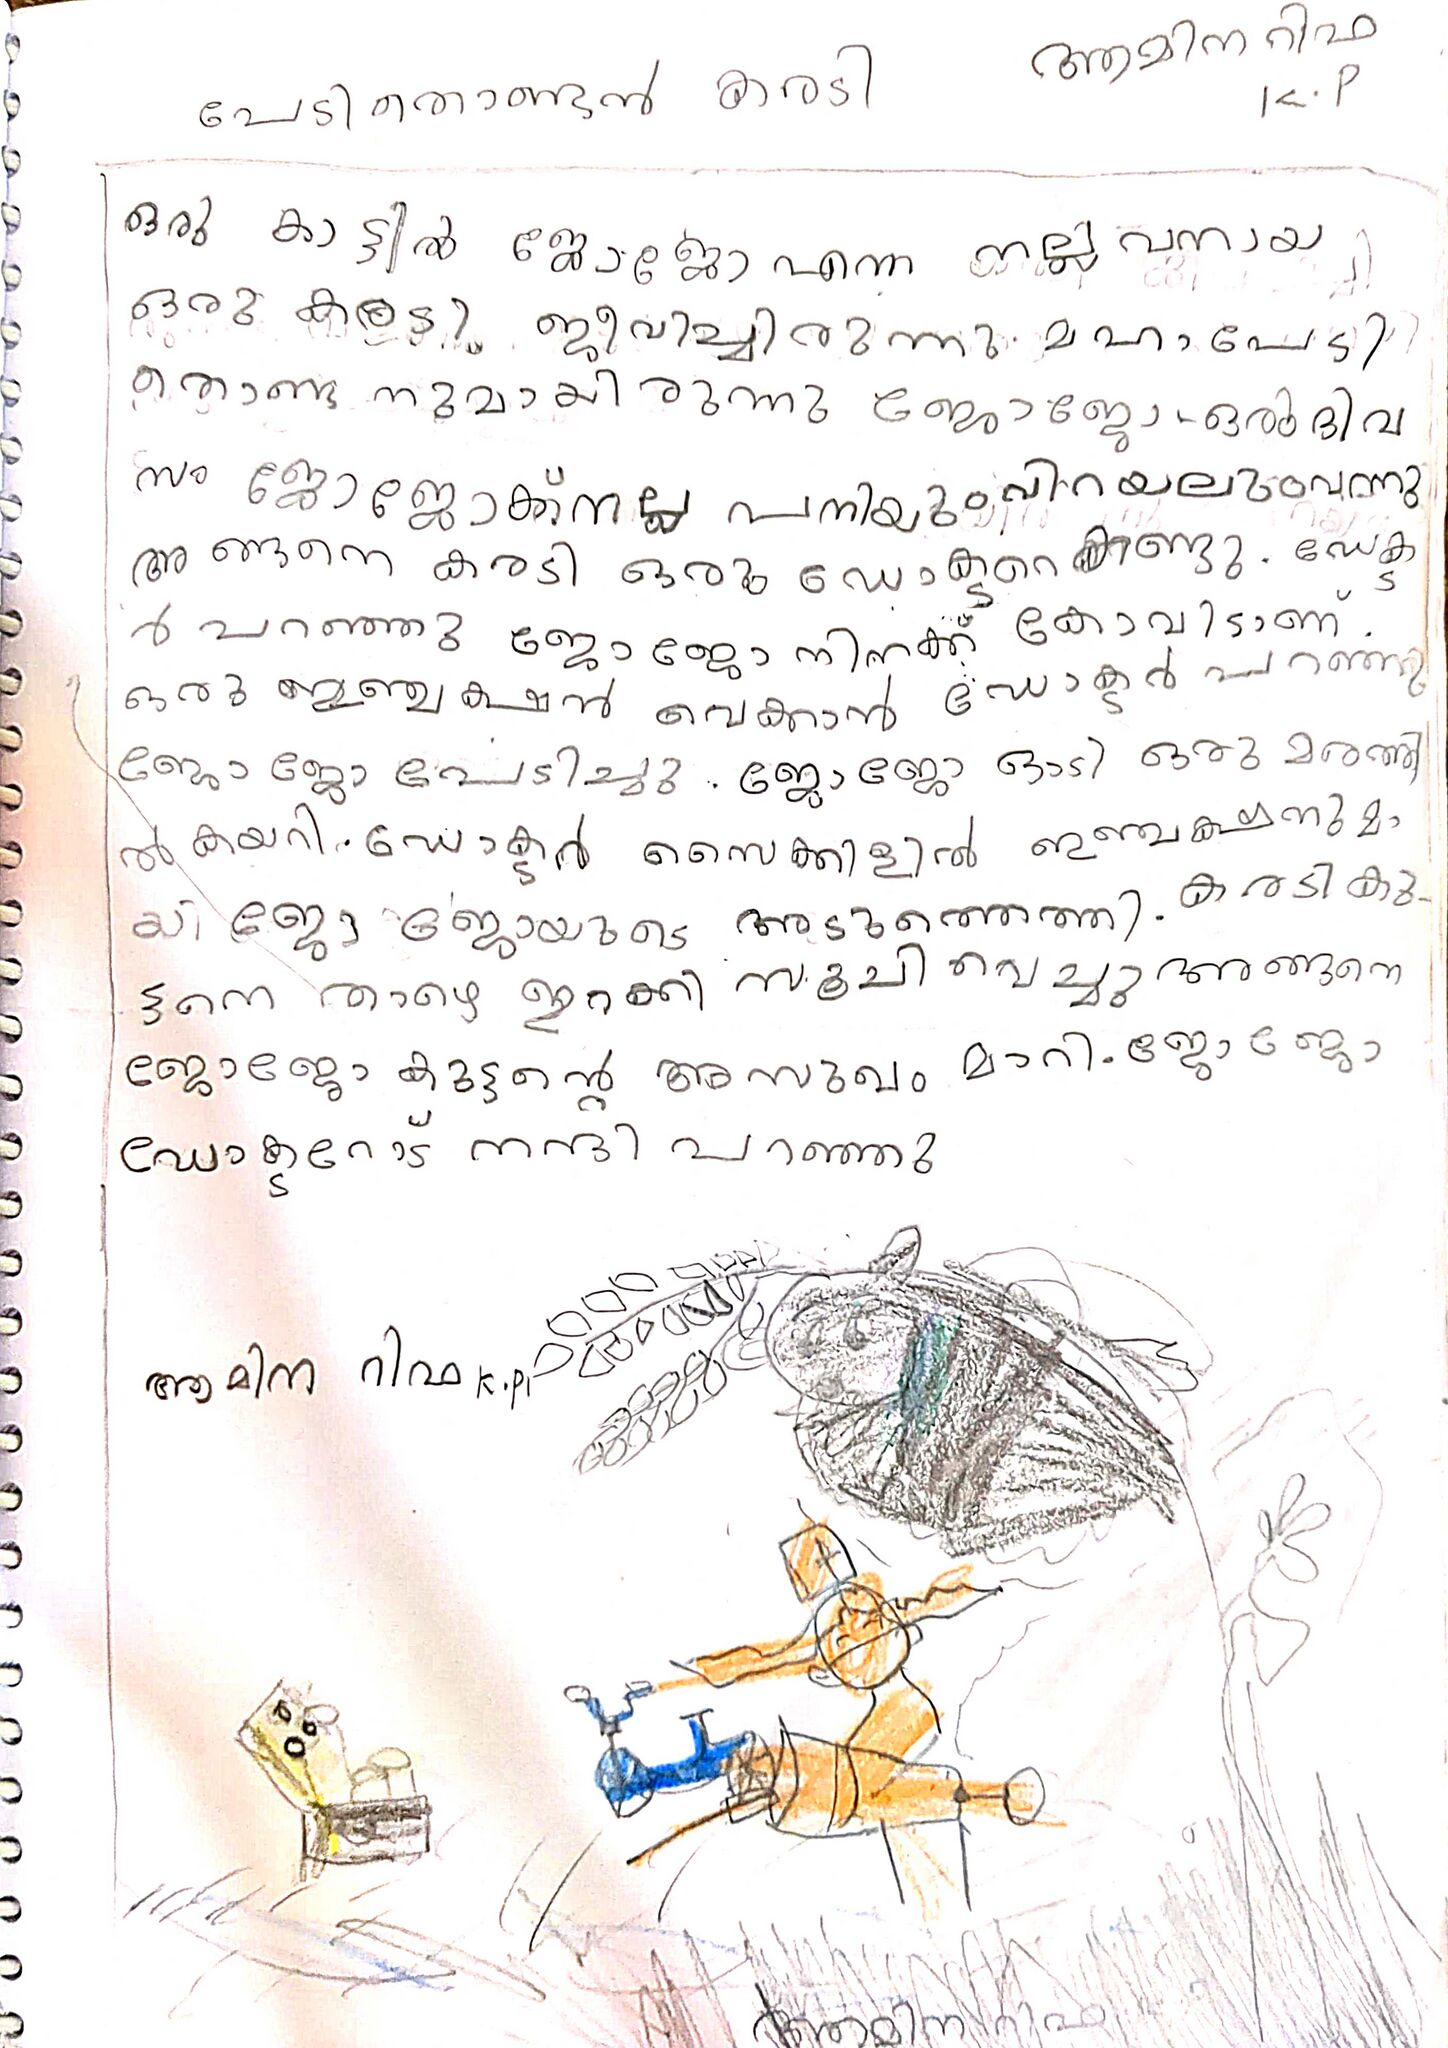 ആമിന റിഫ
K.P
പേടിതൊണ്ടൻ കരടി
ഒരു കാട്ടിൽ ജോജോ എന്ന നല്ലവനായ
ഒരു കരടി ജീവിച്ചിരുന്നു. മഹാപേടി
തൊണ്ടനുമായിരുന്നു ജോജോ. ഒരു ദിവ
സം ജോജോക്ക് നല്ല പനിയും വിറയലും വന്നു
അങ്ങനെ കരടി ഒരു ഡോക്ടറെ കണ്ടു. ഡോക്ട
ർ പറഞ്ഞു ജോജോ നിനക്ക് കോവിടാണ്.
ഒരു ഇഞ്ചക്ഷൻ വെക്കാൻ ഡോക്ടർ പറഞ്ഞു
ജോജോ പേടിച്ചു. ജോജോ ഓടി ഒരു മരത്തി
ൽ കയറി. ഡോക്ടർ സൈക്കിളിൽ ഇഞ്ചക്ഷനുമാ
യി ജോജോയുടെ അടുത്തെത്തി. കരടികു-
ട്ടനെ താഴെ ഇറക്കി സൂചി വെച്ചു അങ്ങനെ
ജോജോ കുട്ടന്റെ അസുഖം മാറി. ജോജോ
ഡോക്ടറോട് നന്ദി പറഞ്ഞു
ആമിന റിഫ K.P
ആമിന റിഫ